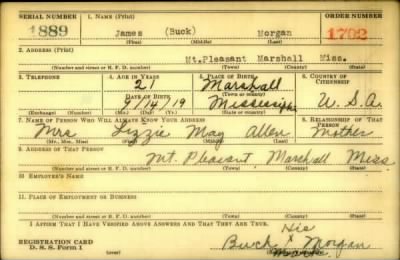 SERIAL NUMBER 1. NAME (Print) ORDER NUMBER
1889 James (Buck) Morgan 1702
(First) (Middle) (Last)
2. ADDRESS (Print)
Mt.Pleasant Marshall Miss.
(Number and street or R. F. D. number) (Town) (County) (State)
3. TELEPHONE 4. AGE IN YEARS 5. PLACE OF BIRTH 6. COUNTRY OF CITIZENSHIP
21 Marshall
(Town or county)
DATE OF BIRTH
9/14/19 Mississippi U.S.A.
(Exchange) (Number) (Mo.) (Day) (Yr.) (State or country)
7. NAME OF PERSON WHO WILL ALWAYS KNOW YOUR ADDRESS 8. RELATIONSHIP OF THAT PERSON
Mrs Lizzie May Allen Mother
(Mr., Mrs., Miss) (First) (Middle) (Last)
9. ADDRESS OF THAT PERSON
Mt. Pleasant, Marshall Miss
(Number and street or R. F. D. number) (Town) (County) (State)
10. EMPLOYER'S NAME
11. PLACE OF EMPLOYMENT OR BUSINESS
(Number and street or R. F. D. number) (Town) (County) (State)
I AFFIRM THAT I HAVE VERIFIED ABOVE ANSWERS AND THAT THEY ARE TRUE.
His
REGISTRATION CARD Buck X Morgan
D. S. S. Form 1 Mark